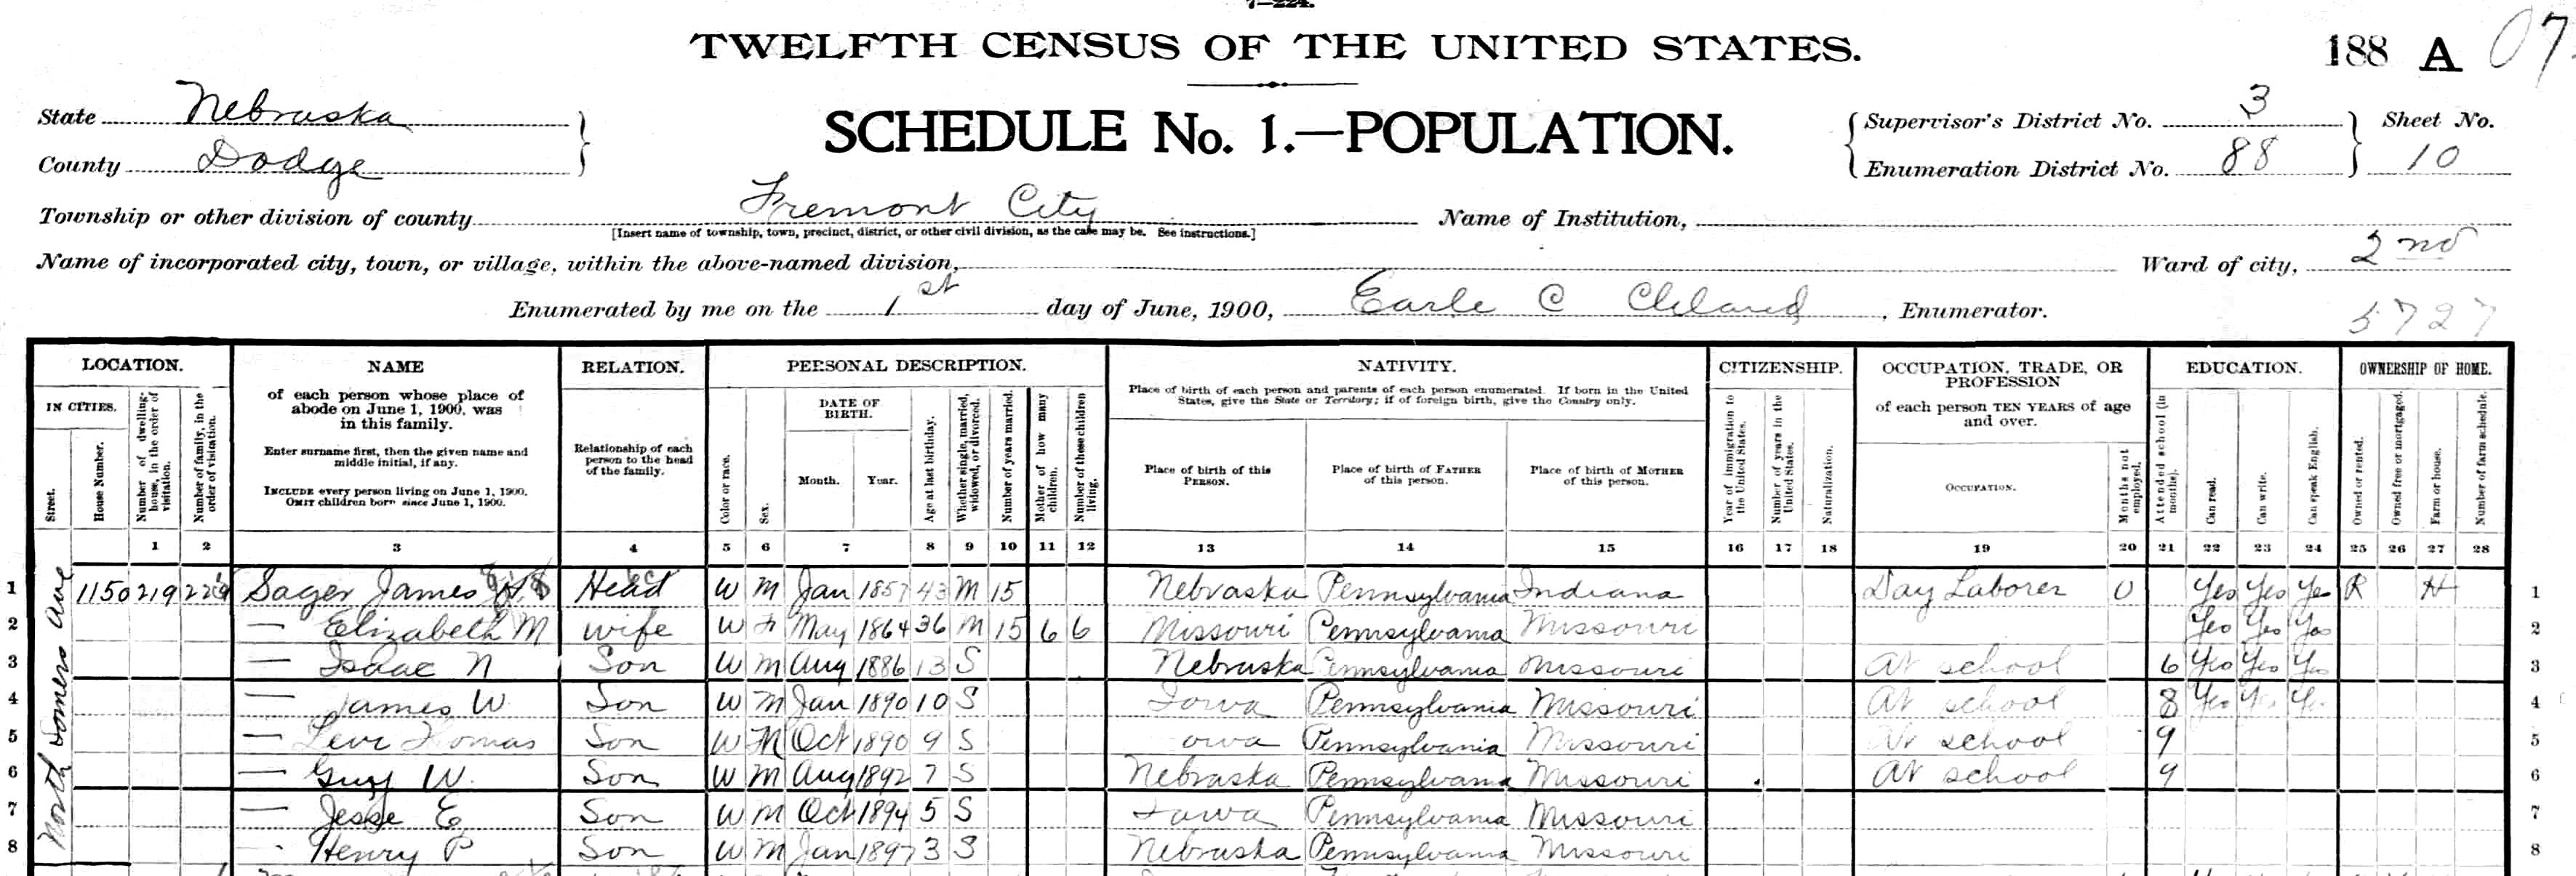 7—224.
TWELFTH CENSUS OF THE UNITED STATES.
188 A 07
State Nebraska
County Dodge
SCHEDULE No. 1.—POPULATION.
Supervisor's District No. 3 Sheet No.
Enumeration District No. 88 10
Township or other division of county Fremont City Name of Institution,
[Insert name of township, town, precinct, district, or other civil division, as the case may be. See instructions.]
Name of incorporated city, town, or village, within the above-named division, Ward of city, 2nd
Enumerated by me on the 1st day of June, 1900, Earle C Cleland, Enumerator.
5727
LOCATION. NAME RELATION. PERSONAL DESCRIPTION. NATIVITY. CITIZENSHIP. OCCUPATION, TRADE, OR PROFESSION EDUCATION. OWNERSHIP OF HOME.
IN CITIES. Street. House Number. Number of dwelling-house, in the order of visitation. Number of family, in the order of visitation.
of each person whose place of abode on June 1, 1900, was in this family.
Enter surname first, then the given name and middle initial, if any.
INCLUDE every person living on June 1, 1900. OMIT children born since June 1, 1900.
Relationship of each person to the head of the family.
Color or race. Sex. DATE OF BIRTH. Month. Year. Age at last birthday. Whether single, married, widowed, or divorced. Number of years married. Mother of how many children. Number of these children living.
Place of birth of each person and parents of each person enumerated. If born in the United States, give the State or Territory; if of foreign birth, give the Country only.
Place of birth of this PERSON. Place of birth of FATHER of this person. Place of birth of MOTHER of this person.
Year of immigration to the United States. Number of years in the United States. Naturalization.
of each person TEN YEARS of age and over.
OCCUPATION. Months not employed.
Attended school (in months). Can read. Can write. Can speak English.
Owned or rented. Owned free or mortgaged. Farm or house. Number of farm schedule.
1 2 3 4 5 6 7 8 9 10 11 12 13 14 15 16 17 18 19 20 21 22 23 24 25 26 27 28
North Somers Ave
1 1150 219 Sager James Head W M Jan 1857 43 M 15 Nebraska Pennsylvania Indiana Day Laborer 0 Yes Yes Ye R H 1
2 — Elizabeth M wife W F May 1864 36 M 15 6 6 Missouri Pennsylvania Missouri Yes Yes Yes 2
3 — Isaac N Son W M Aug 1886 13 S Nebraska Pennsylvania Missouri At school 6 Yes Yes Yes 3
4 — James W Son W M Jan 1890 10 S Iowa Pennsylvania Missouri At school 8 Yes Yes Yes 4
5 — Levi Thomas Son W M Oct 1890 9 S Iowa Pennsylvania Missouri At school 9 5
6 — Guy W. Son W M Aug 1892 7 S Nebraska Pennsylvania Missouri At school 9 6
7 — Jesse E Son W M Oct 1894 5 S Iowa Pennsylvania Missouri 7
8 - Henry P Son W M Jan 1897 3 S Nebraska Pennsylvania Missouri 8